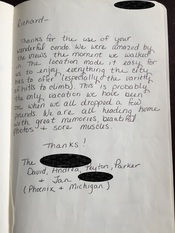 Richard-
Thanks for the use of your
wonderful condo. We were amazed by
the views the moment we walked
in. The location made it easy for
us to enjoy everything the city
has to offer (especially the variety
of hills to climb). This is probably
the only vacation we have been
on when we all dropped a few
pounds. We are all heading home
with great memories, beautiful
photos + sore muscles.
Thanks!
The
David, Andrea, Peyton, Parker
+ Jan
(Phoenix + Michigan)